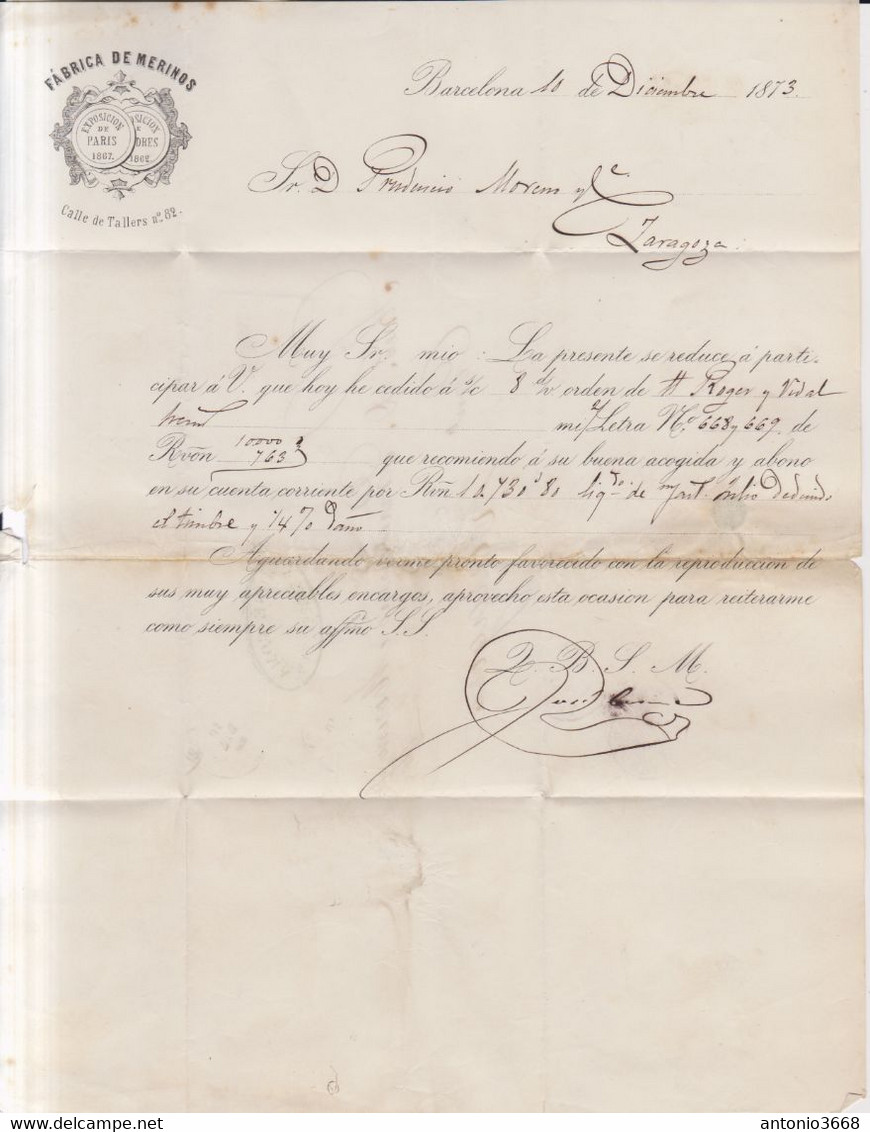 FÁBRICA DE MERINOS
EXPOSICION
DE
PARIS
1867.
OSICION
DRES
1862.
Calle de Tallers nº. 82.
Barcelona 10 de Diciembre 1873.
Sr. D. Prudencio Moreno y Cª
Zaragoza.
Muy Sr. mio: La presente se reduce á parti-
cipar á V. que hoy he cedido á s/c 8 d/v orden de Roger y Vidal
mi s/ Letra Nº 668 y 669 de
Rvón 10000
763
que recomiendo á su buena acogida y abono
en su cuenta corriente por Rvn 10.730 80 liqdo de
el timbre y
Aguardando verme pronto favorecido con la reproduccion de
sus muy apreciables encargos, aprovecho esta ocasion para reiterarme
como siempre su affmo S.S.
Q. B. S. M.
antonio3668